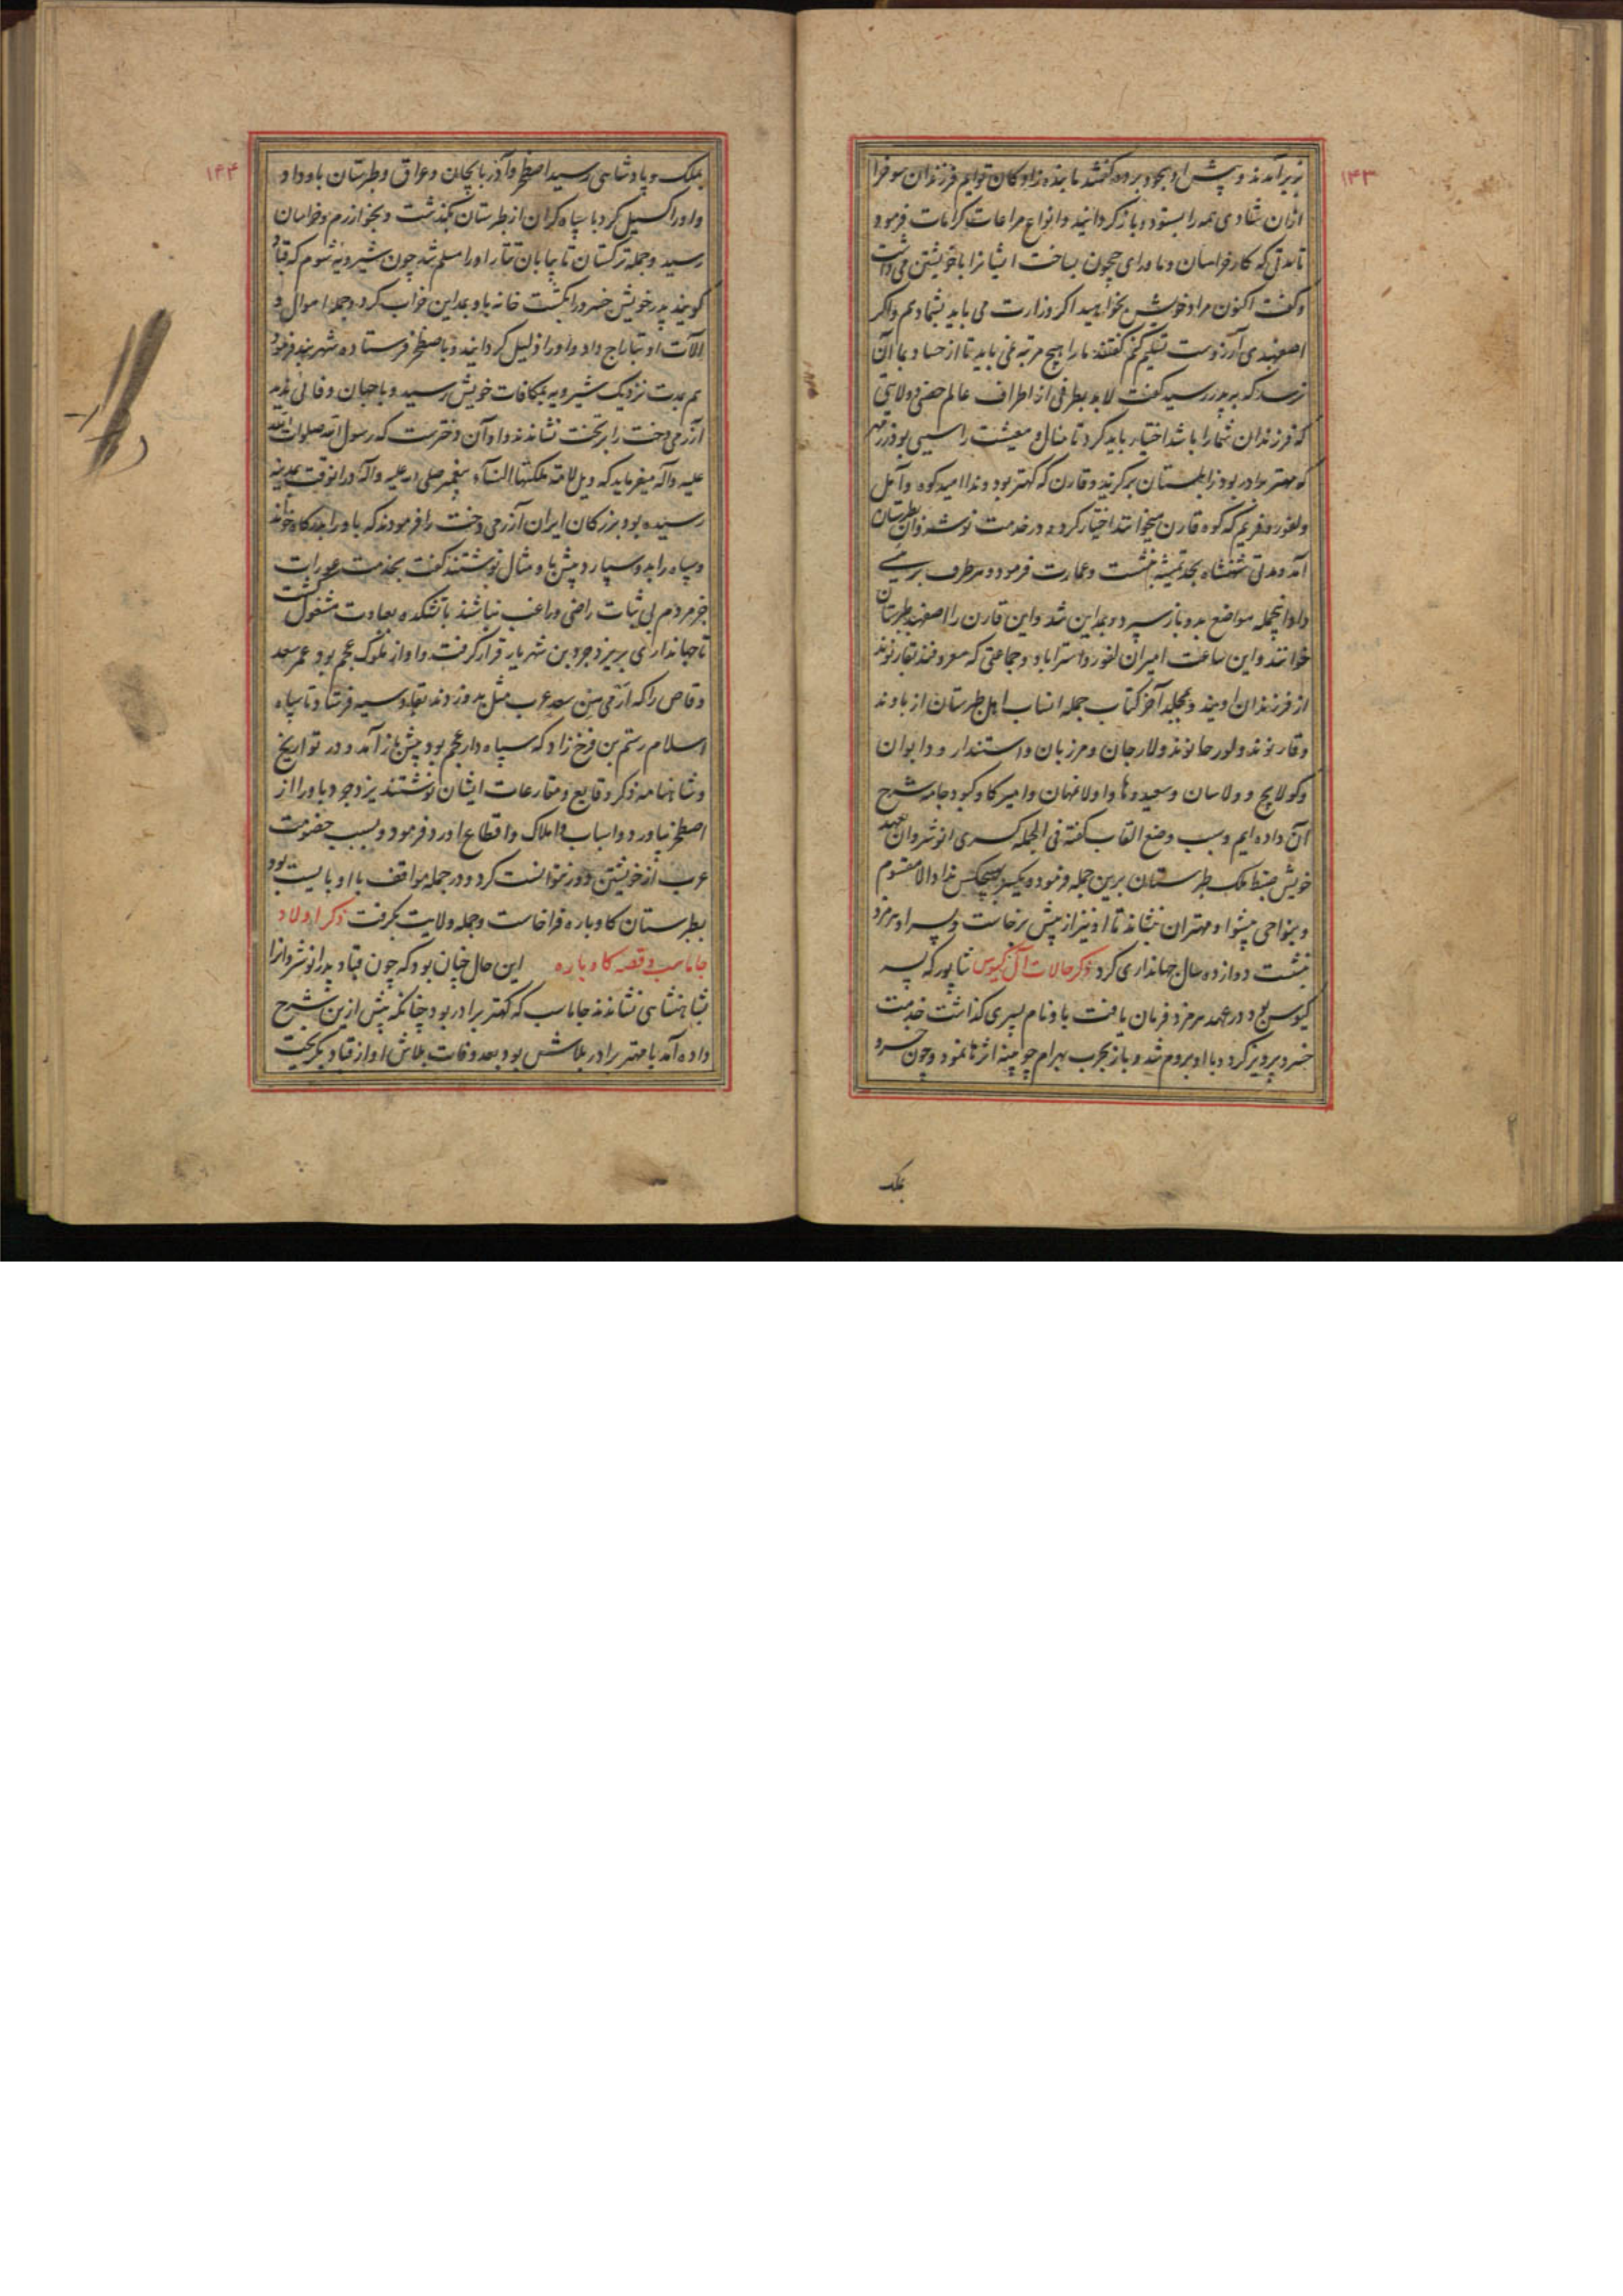 ۱۴۳
زیر آمدند و پیش او بسجود بردند گفتند ما بنده زادگان توایم فرزندان سوخرا
ازان شادی همه را بستود و باز گردانید و انواع مراعات کرامات فرمود
تا مدتی که کار خراسان و ماورای جیحون بساخت ایشانرا با خویشتن می داشت
و گفت اکنون مراد خویش بخواهید اگر وزارت می باید بشما دهم و اگر
اصفهبدی آرزوست تسلیم کنم گفتند ما را هیچ مرتبه نمی باید تا از حساد بما آن
نرسد که بر پدر رسید گفت لابد بطرفی از اطراف عالم حصنی و ولایتی
که فرزندان شما را باشد اختیار باید کرد تا منال و معیشت را سببی بود زرمهر
که مهتر برادر بود زابلستان برگزید و قارن که کهتر بود وندا امید کوه و آمل
و لفور و فریم که کوه قارن میخوانند اختیار کرد و در خدمت نوشروان بطبرستان
آمد و مدتی شهنشاه بحد تمیشه بنشست و عمارت فرمود و هر طرف بر رئیسی
داد و آنجمله مواضع بدو باز سپرد و بمداین شد و این قارن را اصفهبد طبرستان
خوانند و این ساعت امیران لفور و استراباد و جماعتی که معروفند بقارنوند
از فرزندان اویند و بمجلد آخر کتاب جمله انساب اهل طبرستان از باوند
و قارنوند و لورجانوند و لارجان و مرزبان و استندار و دابوان
و کولایج و ولاسان و سعیدوها و اولامهان و امیرکا و کبودجامه شرح
آن داده ایم و سبب وضع القاب گفته فی الجمله کسری انوشروان بعهد
خویش ضبط ملک طبرستان برین جمله فرموده بیکبار بهیچکس نداد الا مقسوم
و بنواحی پیشوا و مهتران بنشاند تا او نیز از پیش برخاست و پسر او هرمزد
بنشست دوازده سال جهانداری کرد ذکر حالات آل کیوس شاپور که پسر
کیوس بود در عهد هرمزد فرمان یافت باو نام پسری گذاشت خدمت
خسرو پرویز کرد و با او بروم شد و باز بحرب بهرام چوبینه اثرها نمود و چون خسرو
بملک
۱۴۴
بملک و پادشاهی رسید اصطخر و آذربایجان و عراق و طبرستان باو داد
و او را گسیل کرد با سپاه گران از طبرستان بگذشت و بخوارزم و خراسان
رسید و جمله ترکستان تا بیابان تتار او را مسلم شد چون شیرویه شوم که قباد
گویند پدر خویش خسرو را بکشت خانه باو بمداین خراب کرد و جمله اموال و
آلات او بتاراج داد و او را ذلیل گردانید و با صطخر فرستاده شهربند فرمود
هم بمدت نزدیک شیرویه بمکافات خویش رسید و با جهان وفا نی پدید
آزرمی دخت را بر تخت نشاندند و او آن دختر ست که رسول الله صلوات الله
علیه و آله میفرماید که ویل لامة ملکتها النسآء پیغمبر صلی الله علیه و آله درانوقت بمدینه
رسیده بود بزرکان ایران آزرمی دخت را فرمودند که باو را بدرگاه خواند
و سپاه را بدو سپارد پیش باو مثال نوشتند گفت بخدمت عورات
جز مردم بی ثبات راضی و راغب نباشند با تشکده بعبادت مشغول گشت
تا جهانداری بر یزدجرد بن شهریار قرار گرفت و او از ملوک عجم بود عمر سعد
وقاص را که از می بن سعد عرب مثل بدو زدند بقادسیه فرستاد تا سپاه
اسلام رستم بن فرخ زاد که سپاه دار عجم بود پیش باز آمد و در تواریخ
و شاهنامه ذکر وقایع و مقارعات ایشان نوشتند یزدجرد باو را از
اصطخر بیاورد و اسباب و املاک و اقطاع او رد فرمود و بسبب خصومت
عرب از خویشتن دور نتوانست کرد و در جمله مواقف با او بایست بود
بطبرستان گاوباره فراخاست و جمله ولایت بگرفت ذکر اولاد
جاماسب و قصه گاوباره این حال چنان بود که چون قباد پدر انوشروانرا
بشاهنشاهی نشاندند جاماسب که کهتر برادر بود چنانکه پیش ازین شرح
داده آمد با مهتر برادر بلاش بود بعد وفات بلاش او از قباد بگریخت